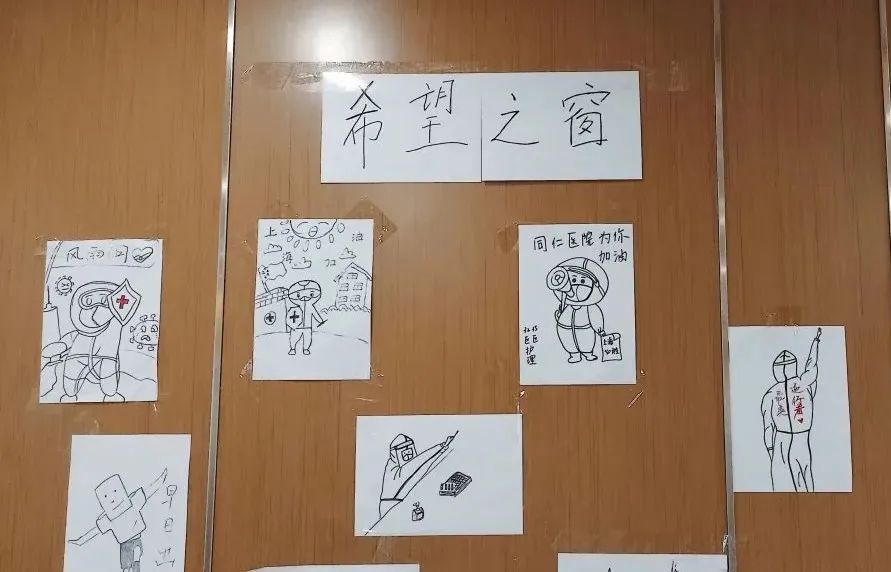 希望之窗
风雨同
上海加油
同仁医院为你
加油
护理
上海
必胜
逆行者
早日出